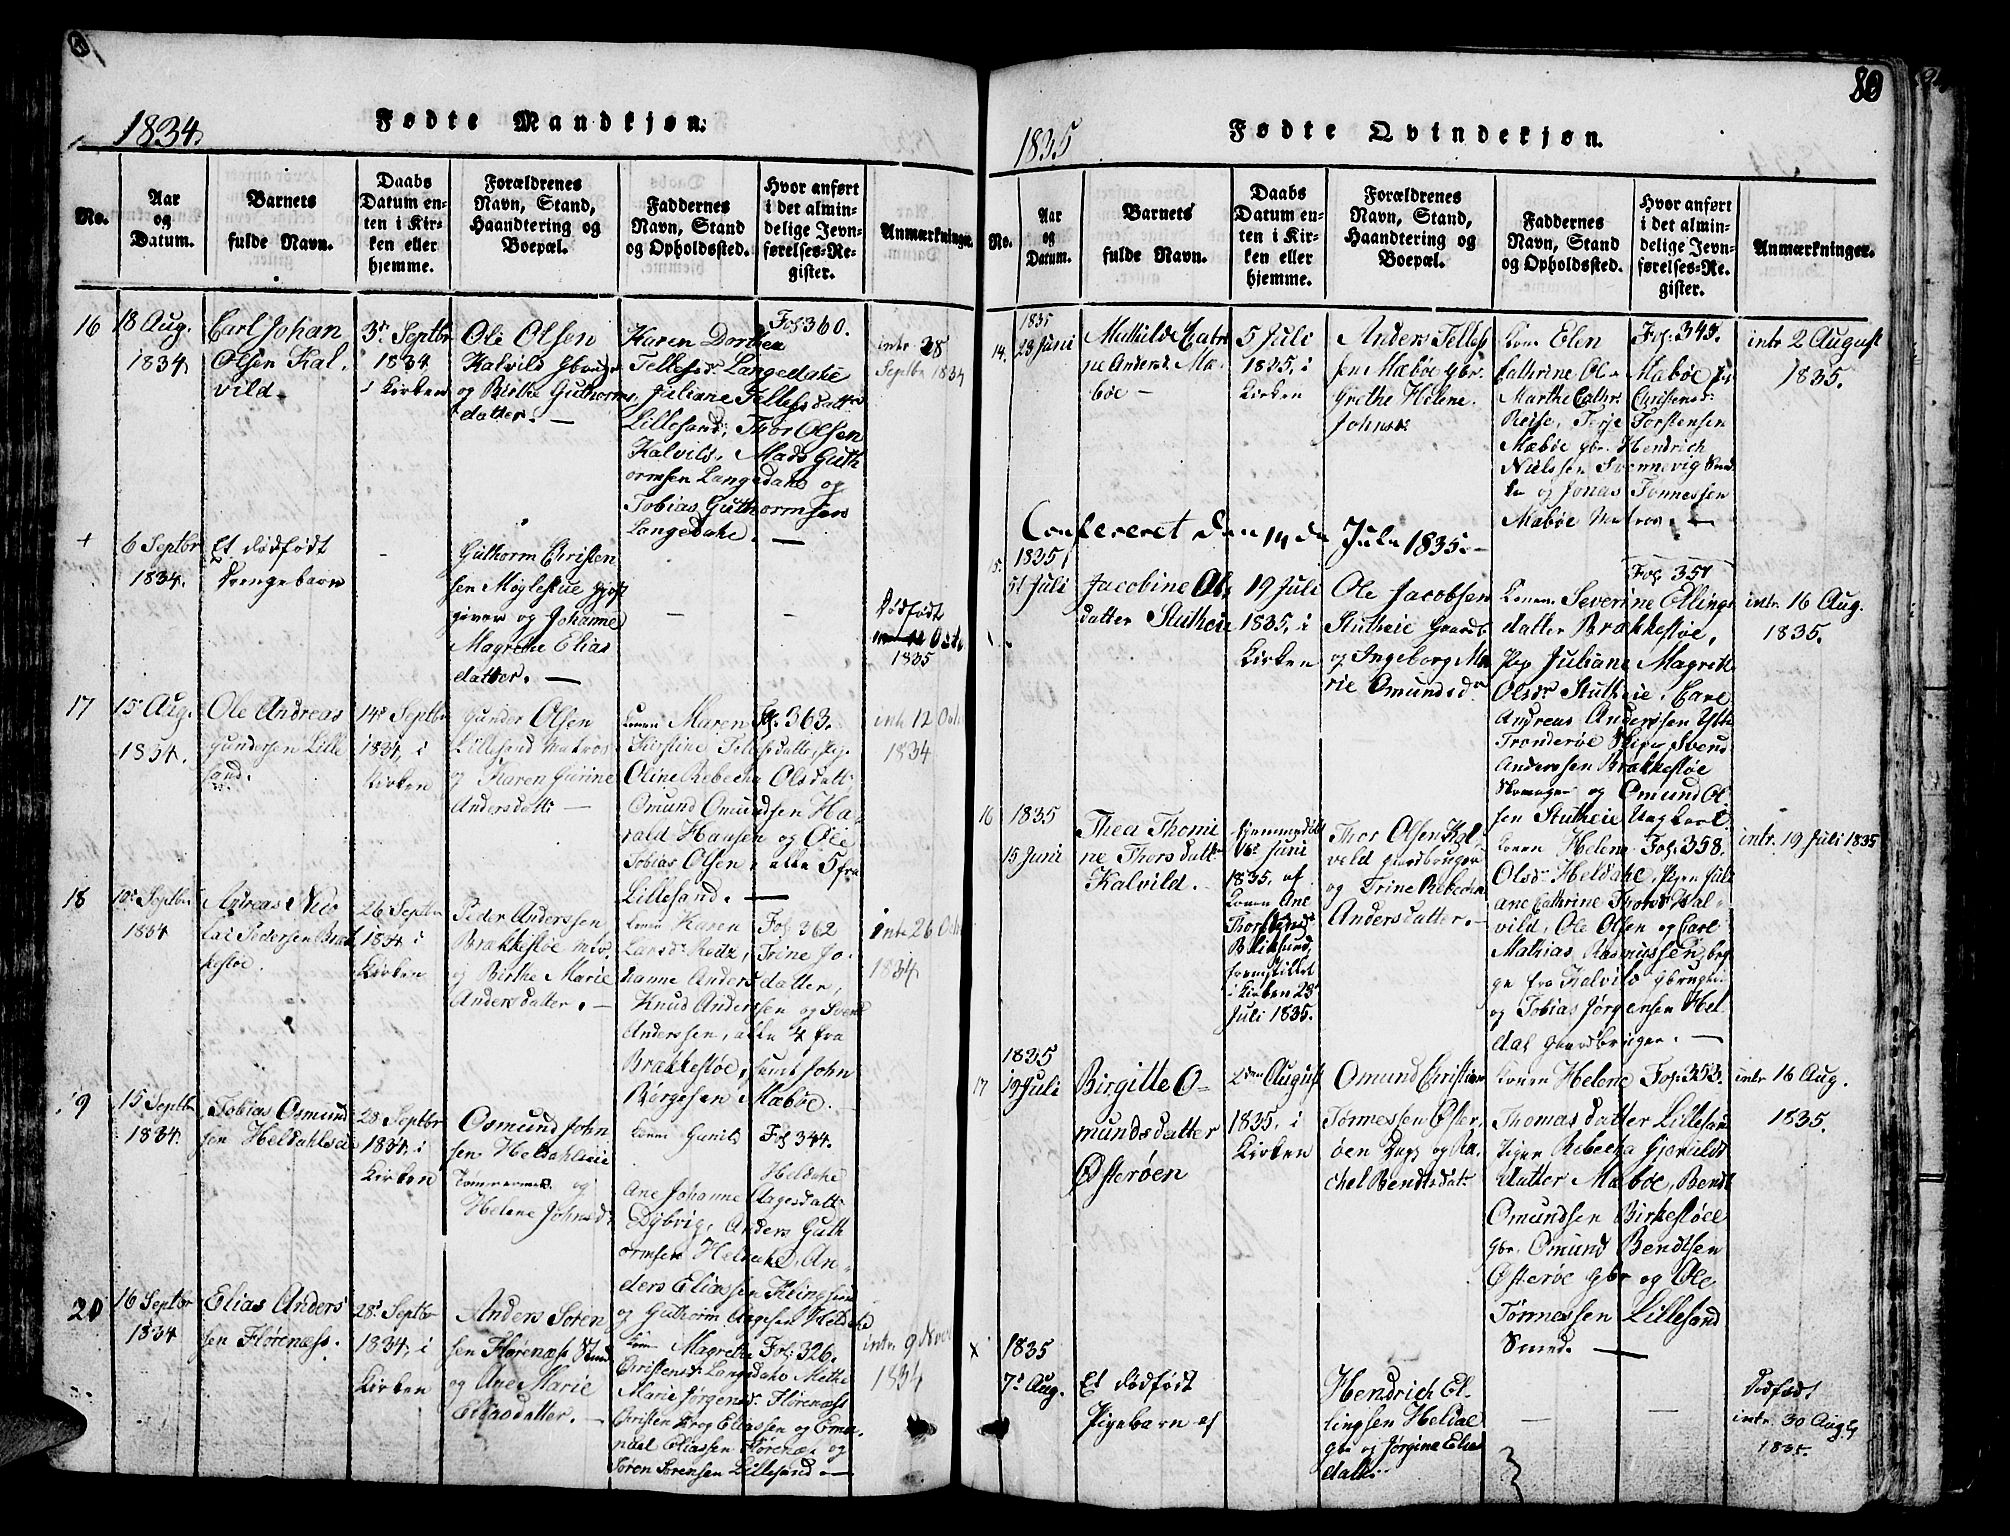 1834.
Fødte Mandkjøn.
No.
Aar og Datum.
Barnets fulde Navn.
Daabs Datum enten i Kirken eller hjemme.
Forældrenes Navn, Stand, Haandtering og Boepæl.
Faddernes Navn, Stand og Opholdssted.
Hvor anført i det almindelige Jevnførelses-Register.
Anmærkninger.
16
18 Aug.
1834
Carl Johan
Olsen Kal-
vild.
3. Septbr
1834
i Kirken
Ole Olsen
Kalvild
og Birthe Guthorms
datter. —
Karen Dorthea
Tellefsdr Langedahe
Juliane Tellefsdatter
Lillesand, Thor Olsen
Kalvild, Mads Guth
ormsen Langedahe og
Tobias Guthormsen
Langedahe. —
Fol 360.
intr 28
Septbr 1834
+
6 Septbr
1834.
Et dødfødt
Drengebarn
Guthorm Christen
sen Møglestue gjest
giver og Johanne
Magrethe Elias
datter. —
Dødfødt
1835
17
15 Aug.
1834.
Ole Andreas
Gundersen Lille
sand.
14 Septbr
1834, i
Kirken
Gunder Olsen
Lillesand Matros
og Karen Gurine
Andersdatter —
Konen Maren
Kirstine Tellefsdatter, Pig.
Oline Rebecka Olsdatt.
Omund Omundsen Ha-
rald Hansen og Ole
Tobias Olsen, alle 5 fra
Lillesand. —
Fol. 363.
intr 12 Octr
1834
18
10 Septbr
1834
Andreas Nico
lai Pedersen Bræk
kestøe.
26 Septbr
1834 i
Kirken
Peder Anderssen
Brækkestøe
og Birthe Marie
Andersdatter. —
Konen Karen
Larsdr Trine Jo-
hanne Andersdatter,
Knud Anderssen og Svend
Anderssen, alle 4 fra
Brækkestøe, samt John
Børgesen Mæbøe.
Fol. 362
intr 26 Octr
1834
19
15 Septbr
1834.
Tobias Osmund
sen Heldahlseie
28 Septbr
1834, i
Kirken
Osmund John
sen Heldahlseie
Tømmermand og
Helene Johnsdr
Konen Gunild
Heldahe
Ane Johanne Aagesdatt.
Dybvig, Anders Guth
ormsen Heldahe, An-
ders Eliassen Klingsund
og Guthorm Aagesen Heldahe
Fol 344.
20
16 Septbr
1834
Elias Anders
sen Flørenæss.
28. Septbr
1834, i
Kirken
Anders Søren
sen Flørenæs
og Ane Marie
Eliasdatter. —
Konen Magrethe
Christensdr Langedahe Mette
Marie Jørgensdr. Flørenæss
Christen Krog Eliassen og Ema-
nuel Eliassen Flørenæs og
Søren Sørensen Lillesand. —
Fol. 326.
intr. 9 Novr
1834
80
1835
Fødte Qvindekjøn.
No.
Aar og Datum.
Barnets fulde Navn.
Daabs Datum enten i Kirken eller hjemme.
Forældrenes Navn, Stand, Haandtering og Boepæl.
Faddernes Navn, Stand og Opholdssted.
Hvor anført i det almindelige Jevnførelses-Register.
Anmærkninger.
14.
1835
23 Juni
Mathilde Cathri
ne Andersdr Mæ-
bøe —
5 Juli
1835, i
Kirken
Anders Tellef
sen Mæbøe gbr.
Grethe Helene
Johnsdr
Konen Elen
Cathrine Olsdr Mæbøe
Marthe Cathr. Christensdr
Terje Torstensen
Mæbøe gbr. Hendrich
Nielssen Svennevig
og Jonas Tønnessen
Mæbøe Matros. —
Fol. 345.
intr 2 August
1835.
Confereret den 14de Julii 1835. —
15.
1835
Juli
Jacobine Ols
datter Stutheie
19 Juli
1835, i
Kirken
Ole Jacobsen
Stutheie Gaardb.
og Ingeborg Ma
rie Omundsdr
Konen Severine Ellings
datter Brækkestøe,
Pige Juliane Magrete
Olsdr Stutheie, Carl
Andreas Anderssen Ytre
Tronderøe Skipr Svend
Anderssen Brækkestøe
og Omund Ol
sen Stutheie Ungkarl.
Fol. 351
intr. 16 Aug.
1835.
16
1835
15 Juni
Thea Thomi
ne Thorsdatter
Kalvild. —
Hjemmedøbt
16 Juni
1835, af
Konen Ane
Thorbjørnsdr
Bliksund,
fremstillet
i Kirken
Juli 1835.
Thor Olsen Kal
vild gaardbruger
og Trine Rebecka
Andersdatter. —
Konen Helene
Olsdr Heldahe, Pigen Juli
ane Cathrine Thorsdr Kal-
vild, Ole Olsen og Carl
Mathias Rasmussen, beg
ge fra Kalvild gbruger
og Tobias Jørgensen Hel
dal gaardbruger. —
Fol. 358.
intr. 19 Juli 1835
17
1835
19 Juli
Birgitte O-
mundsdatter
Østerøen
2den August
1835, i
Kirken
Omund Christian
Tønnessen Øster-
øen og Ra-
chel Bendtsdatr
Konen Helene
Thomasdatter Lillesand
Pigen Rebecka Gjeruldsdatter Mæbøe, Bendt
Omundsen Birkestøel
gbr. Omund Bendtsen
Østerøe gbr og Ole
Tønnessen Lillesand
Smed. —
Fol. 353.
intr 16 Aug.
1835.
x
1835
7. Aug.
Et dødfødt
Pigebarn af
Hendrich El-
lingsen Heldal
gbr og Jørgine Elias
datter.
Dødfødt
intr. 30 Aug.
1835.